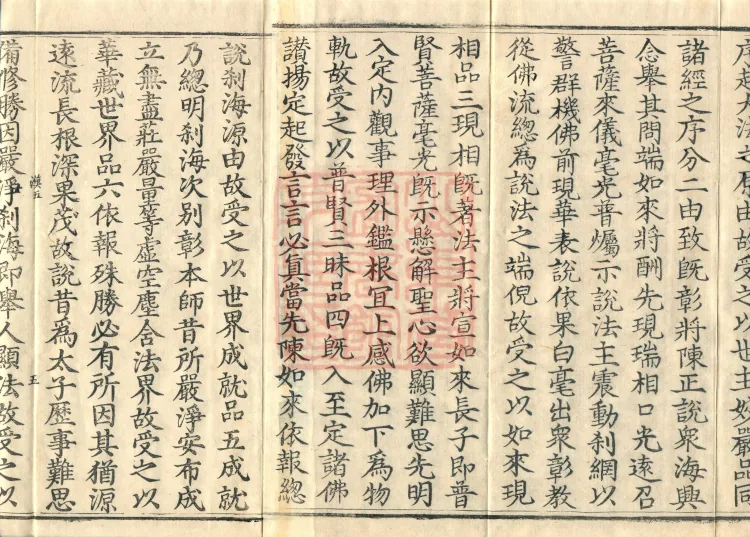 序起大法之有由故受之以世主妙嚴品同
諸經之序分二由致既彰將陳正說眾海興
念舉其問端如來將酬先現瑞相口光遠召
菩薩來儀毫光普矚示說法主震動刹網以
警群機佛前現華表說依果白毫出眾彰教
從佛流總為說法之端倪故受之以如來現
相品三現相既著法主將宣如來長子即普
賢菩薩毫光既示懸解聖心欲顯難思先明
入定內觀事理外鑑根宜上感佛加下為物
軌故受之以普賢三昧品四既入至定諸佛
讚揚定起發言言必真當先陳如來依報總
說刹海源由故受之以世界成就品五成就
乃總明刹海次別彰本師昔所嚴淨安布成
立無盡莊嚴量等虛空塵含法界故受之以
華藏世界品六依報殊勝必有所因其猶源
遠流長根深果茂故說昔為太子歷事難思
漢五 五
備修勝因嚴淨刹海即舉人顯法故受之以